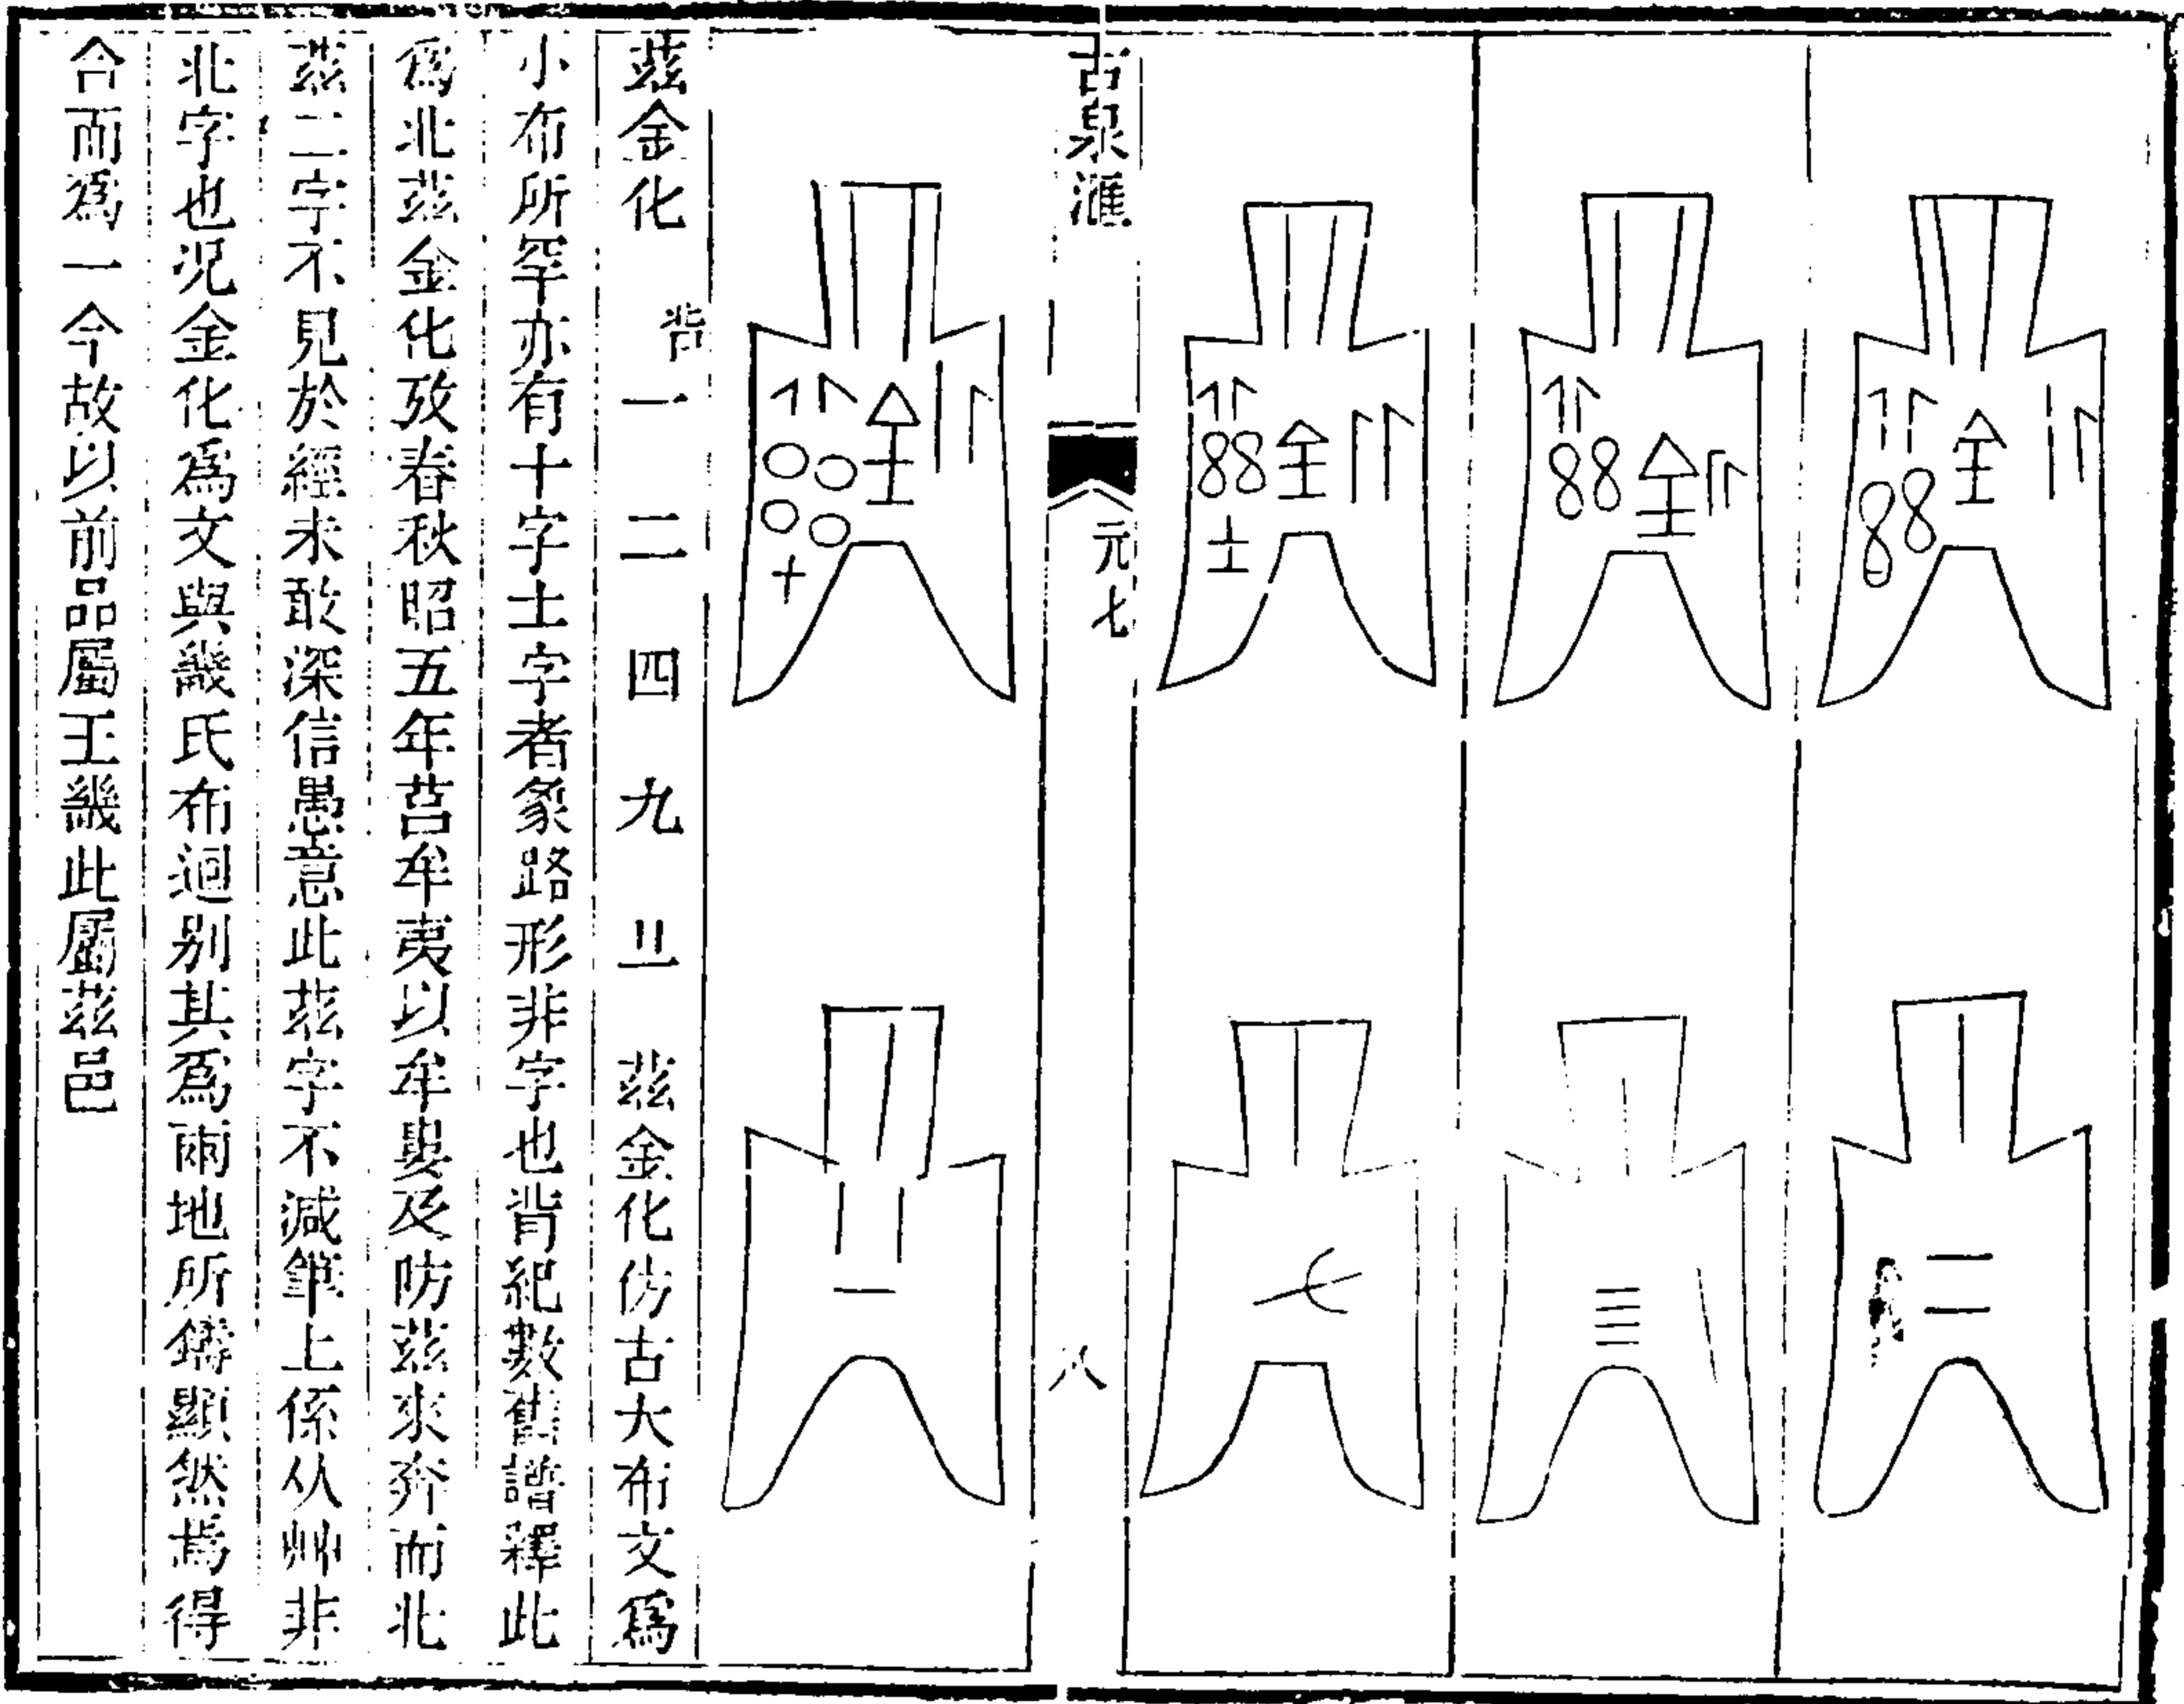 古泉滙
元七
八
茲金化 背 一 二 四 九 〣 茲金化仿古大布文爲
小布所罕亦有十字土字者象路形非字也背紀數舊譜釋此
爲北茲金化攷春秋昭五年莒牟夷以牟婁及防茲來奔而北
茲二字不見於經未敢深信愚意此茲字不減筆上係从艸非
北字也況金化爲文與幾氏布迴别其爲兩地所鑄顯然焉得
合而爲一今故以前品屬王幾此屬茲邑